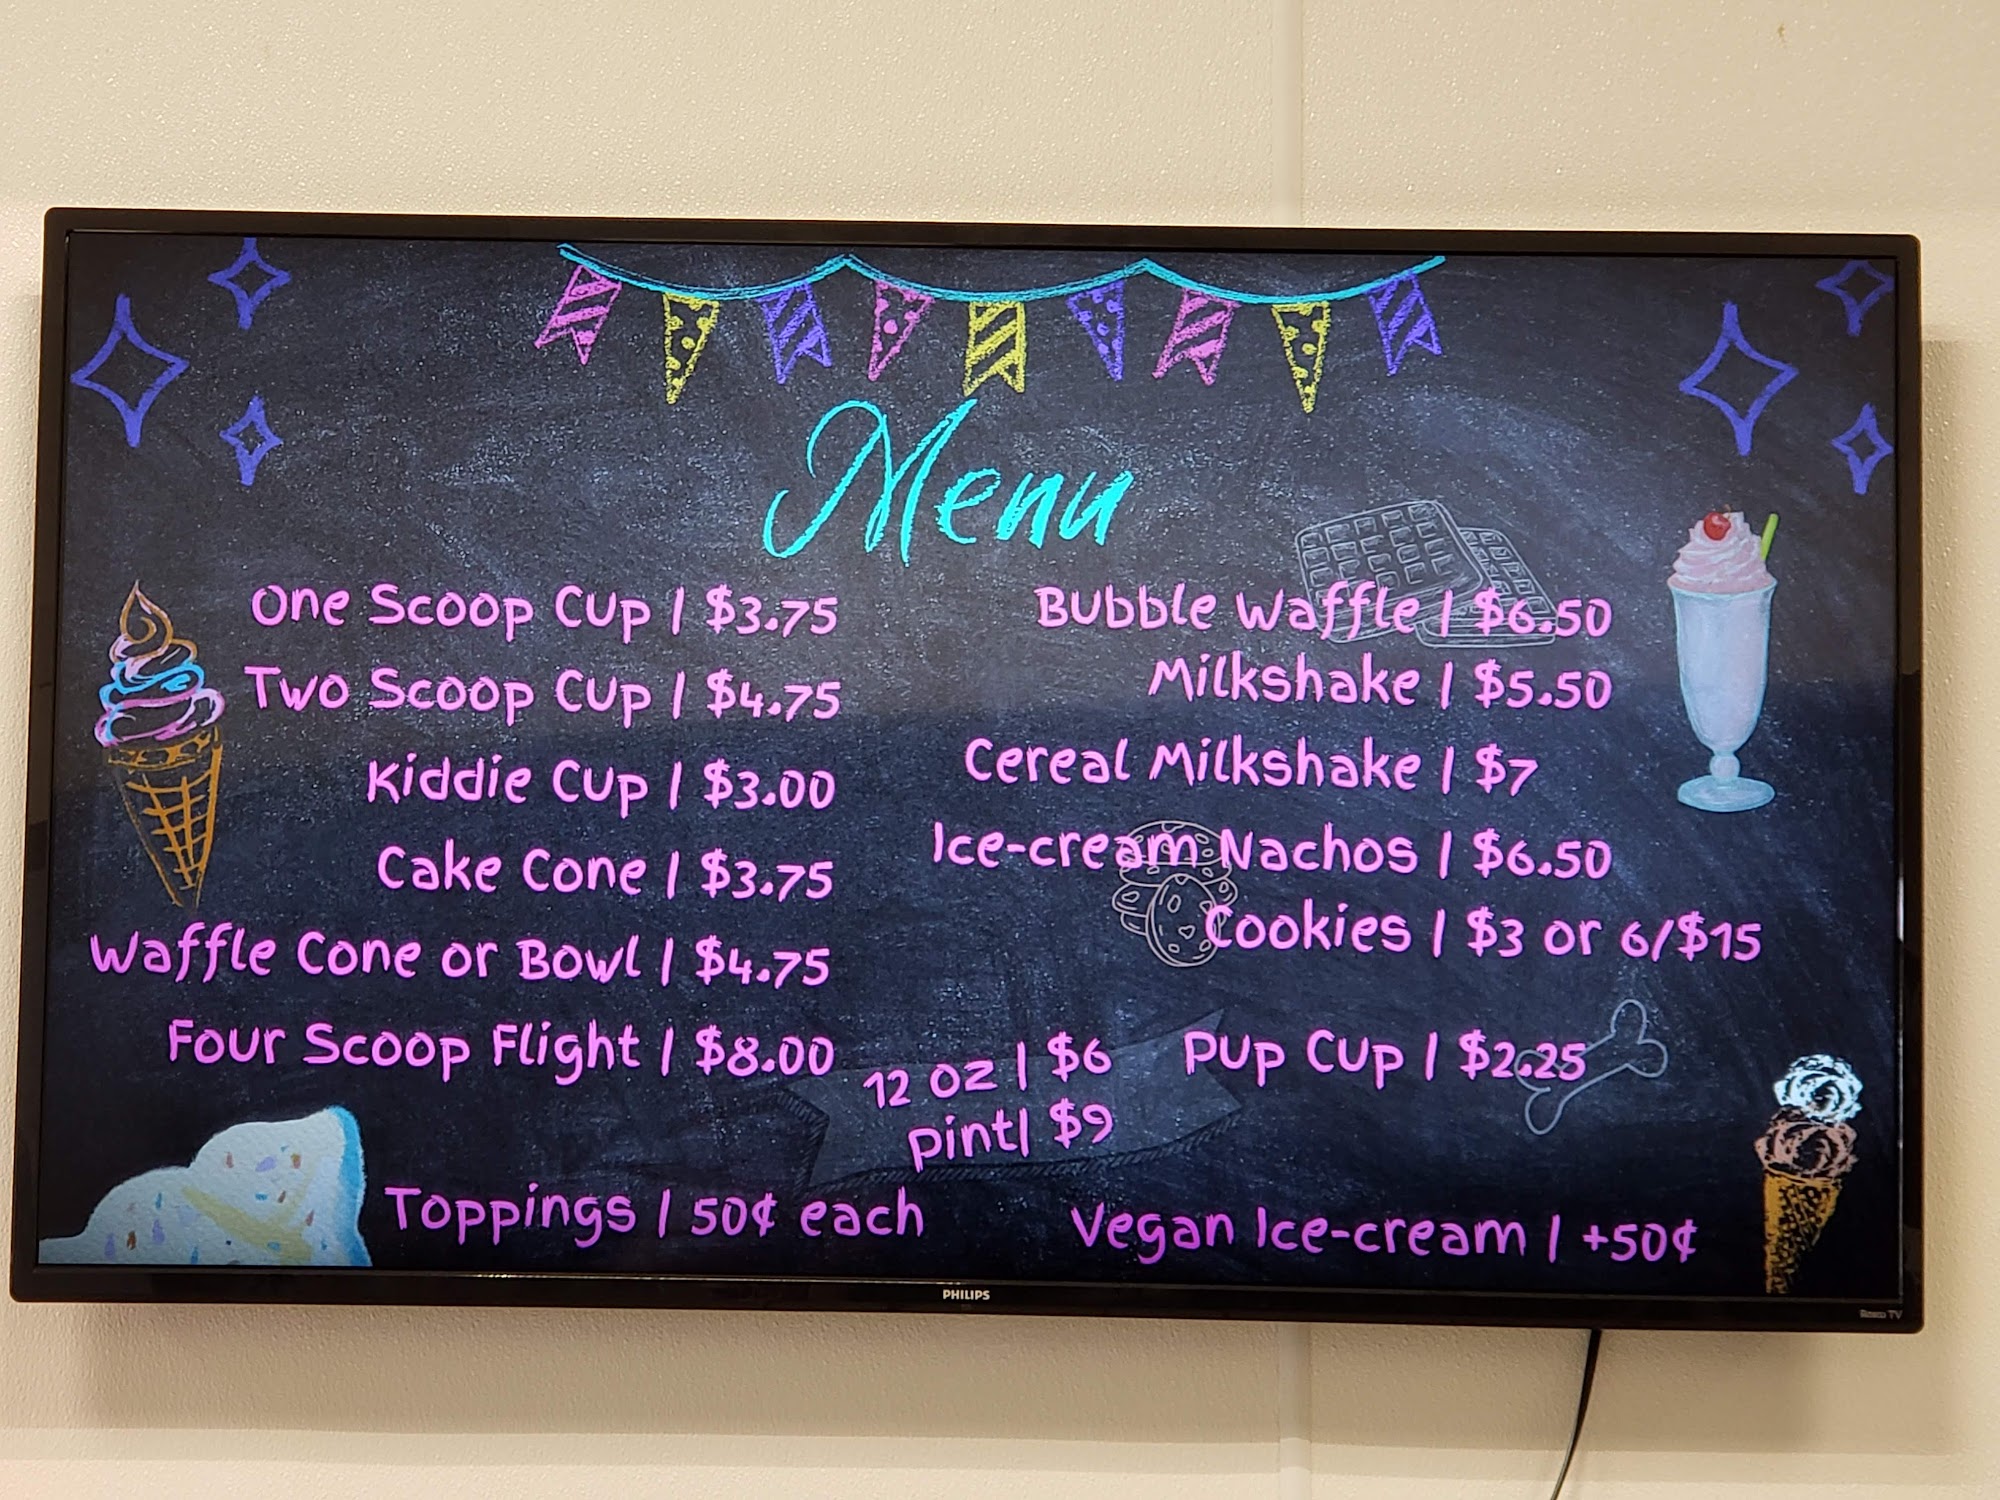 Menu
One Scoop Cup | $3.75
Two Scoop Cup | $4.75
Kiddie Cup | $3.00
Cake Cone | $3.75
Waffle Cone or Bowl | $4.75
Four Scoop Flight | $8.00
Bubble Waffle | $6.50
Milkshake | $5.50
Cereal Milkshake | $7
Ice-cream Nachos | $6.50
Cookies | $3 or 6/$15
12 oz | $6
pint| $9
Pup Cup | $2.25
Toppings | 50¢ each
Vegan Ice-cream | +50¢
PHILIPS
Roku TV